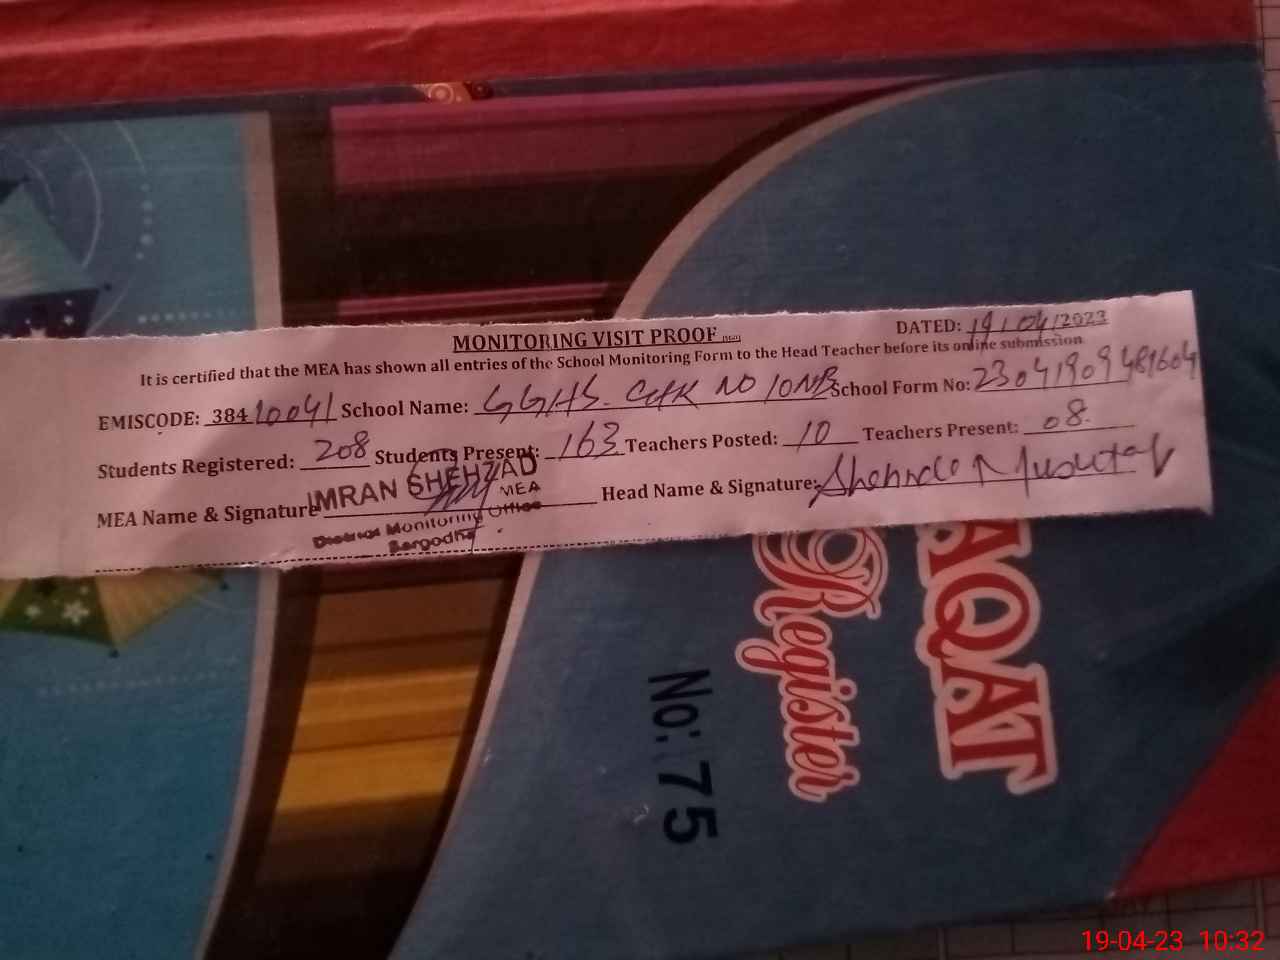 MONITORING VISIT PROOF
DATED: 19/04/2023
It is certified that the MEA has shown all entries of the School Monitoring Form to the Head Teacher before its online submission
EMISCODE: 38410041 School Name: GGHS. Chk NO 10NB School Form No: 23041909481604
Students Registered: 208 Students Present: 163 Teachers Posted: 10 Teachers Present: 08
MEA Name & Signature IMRAN SHEHZAD Head Name & Signature:
MEA
District Monitoring Office
Sargodha
AQAT
Register
No: 75
19-04-23 10:32